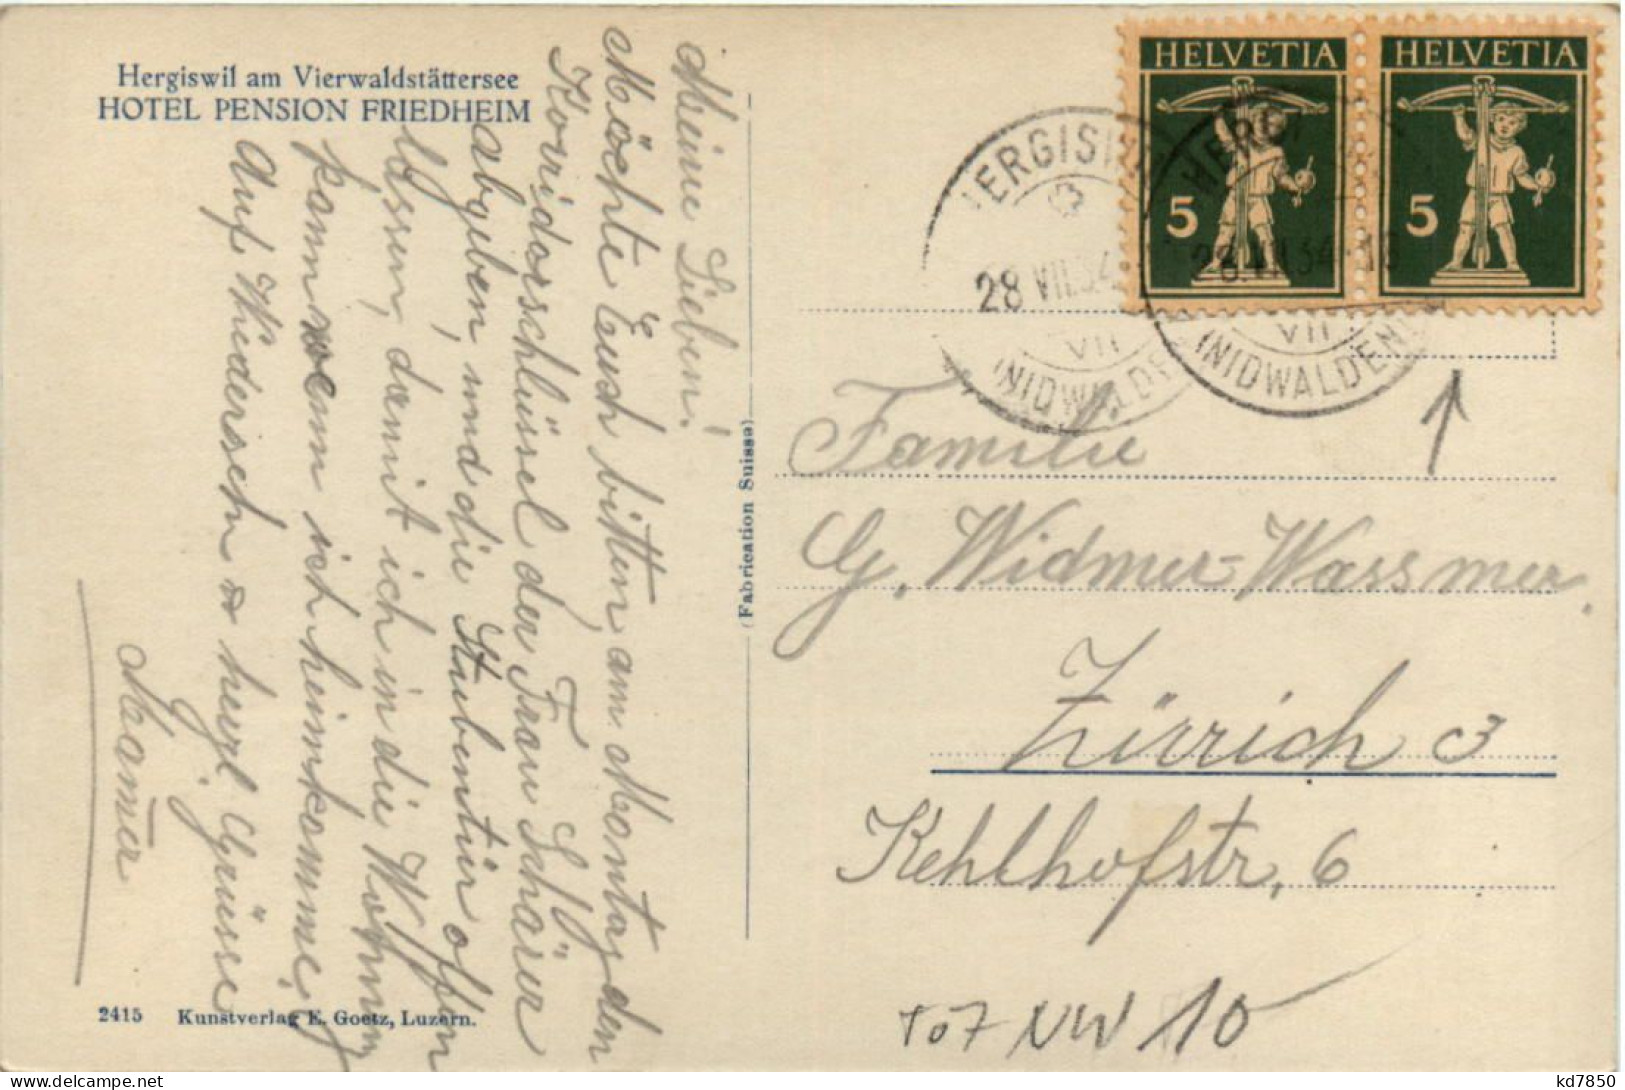 Hergiswil am Vierwaldstättersee
HOTEL PENSION FRIEDHEIM
Meine Lieben!
Möchte Euch bitten, am Montag den
Korridorschlüssel der Frau Schärer
abgeben, und die Stubentür offen
lassen, damit ich in die Wohnung
kann wenn ich heimkomme.
Auf Wiedersehn & herzl. Grüsse
Mamer
(Fabrication Suisse)
2415 Kunstverlag E. Goetz, Luzern.
HELVETIA 5
HELVETIA 5
HERGISWIL
28 VII.34
VII
(NIDWALDEN)
HERGI
28.VII.34
VII
(NIDWALDEN)
Familie
G. Widmer-Wassmer,
Zürich 3
Kehlhofstr, 6
To7 NW 10
kd7850